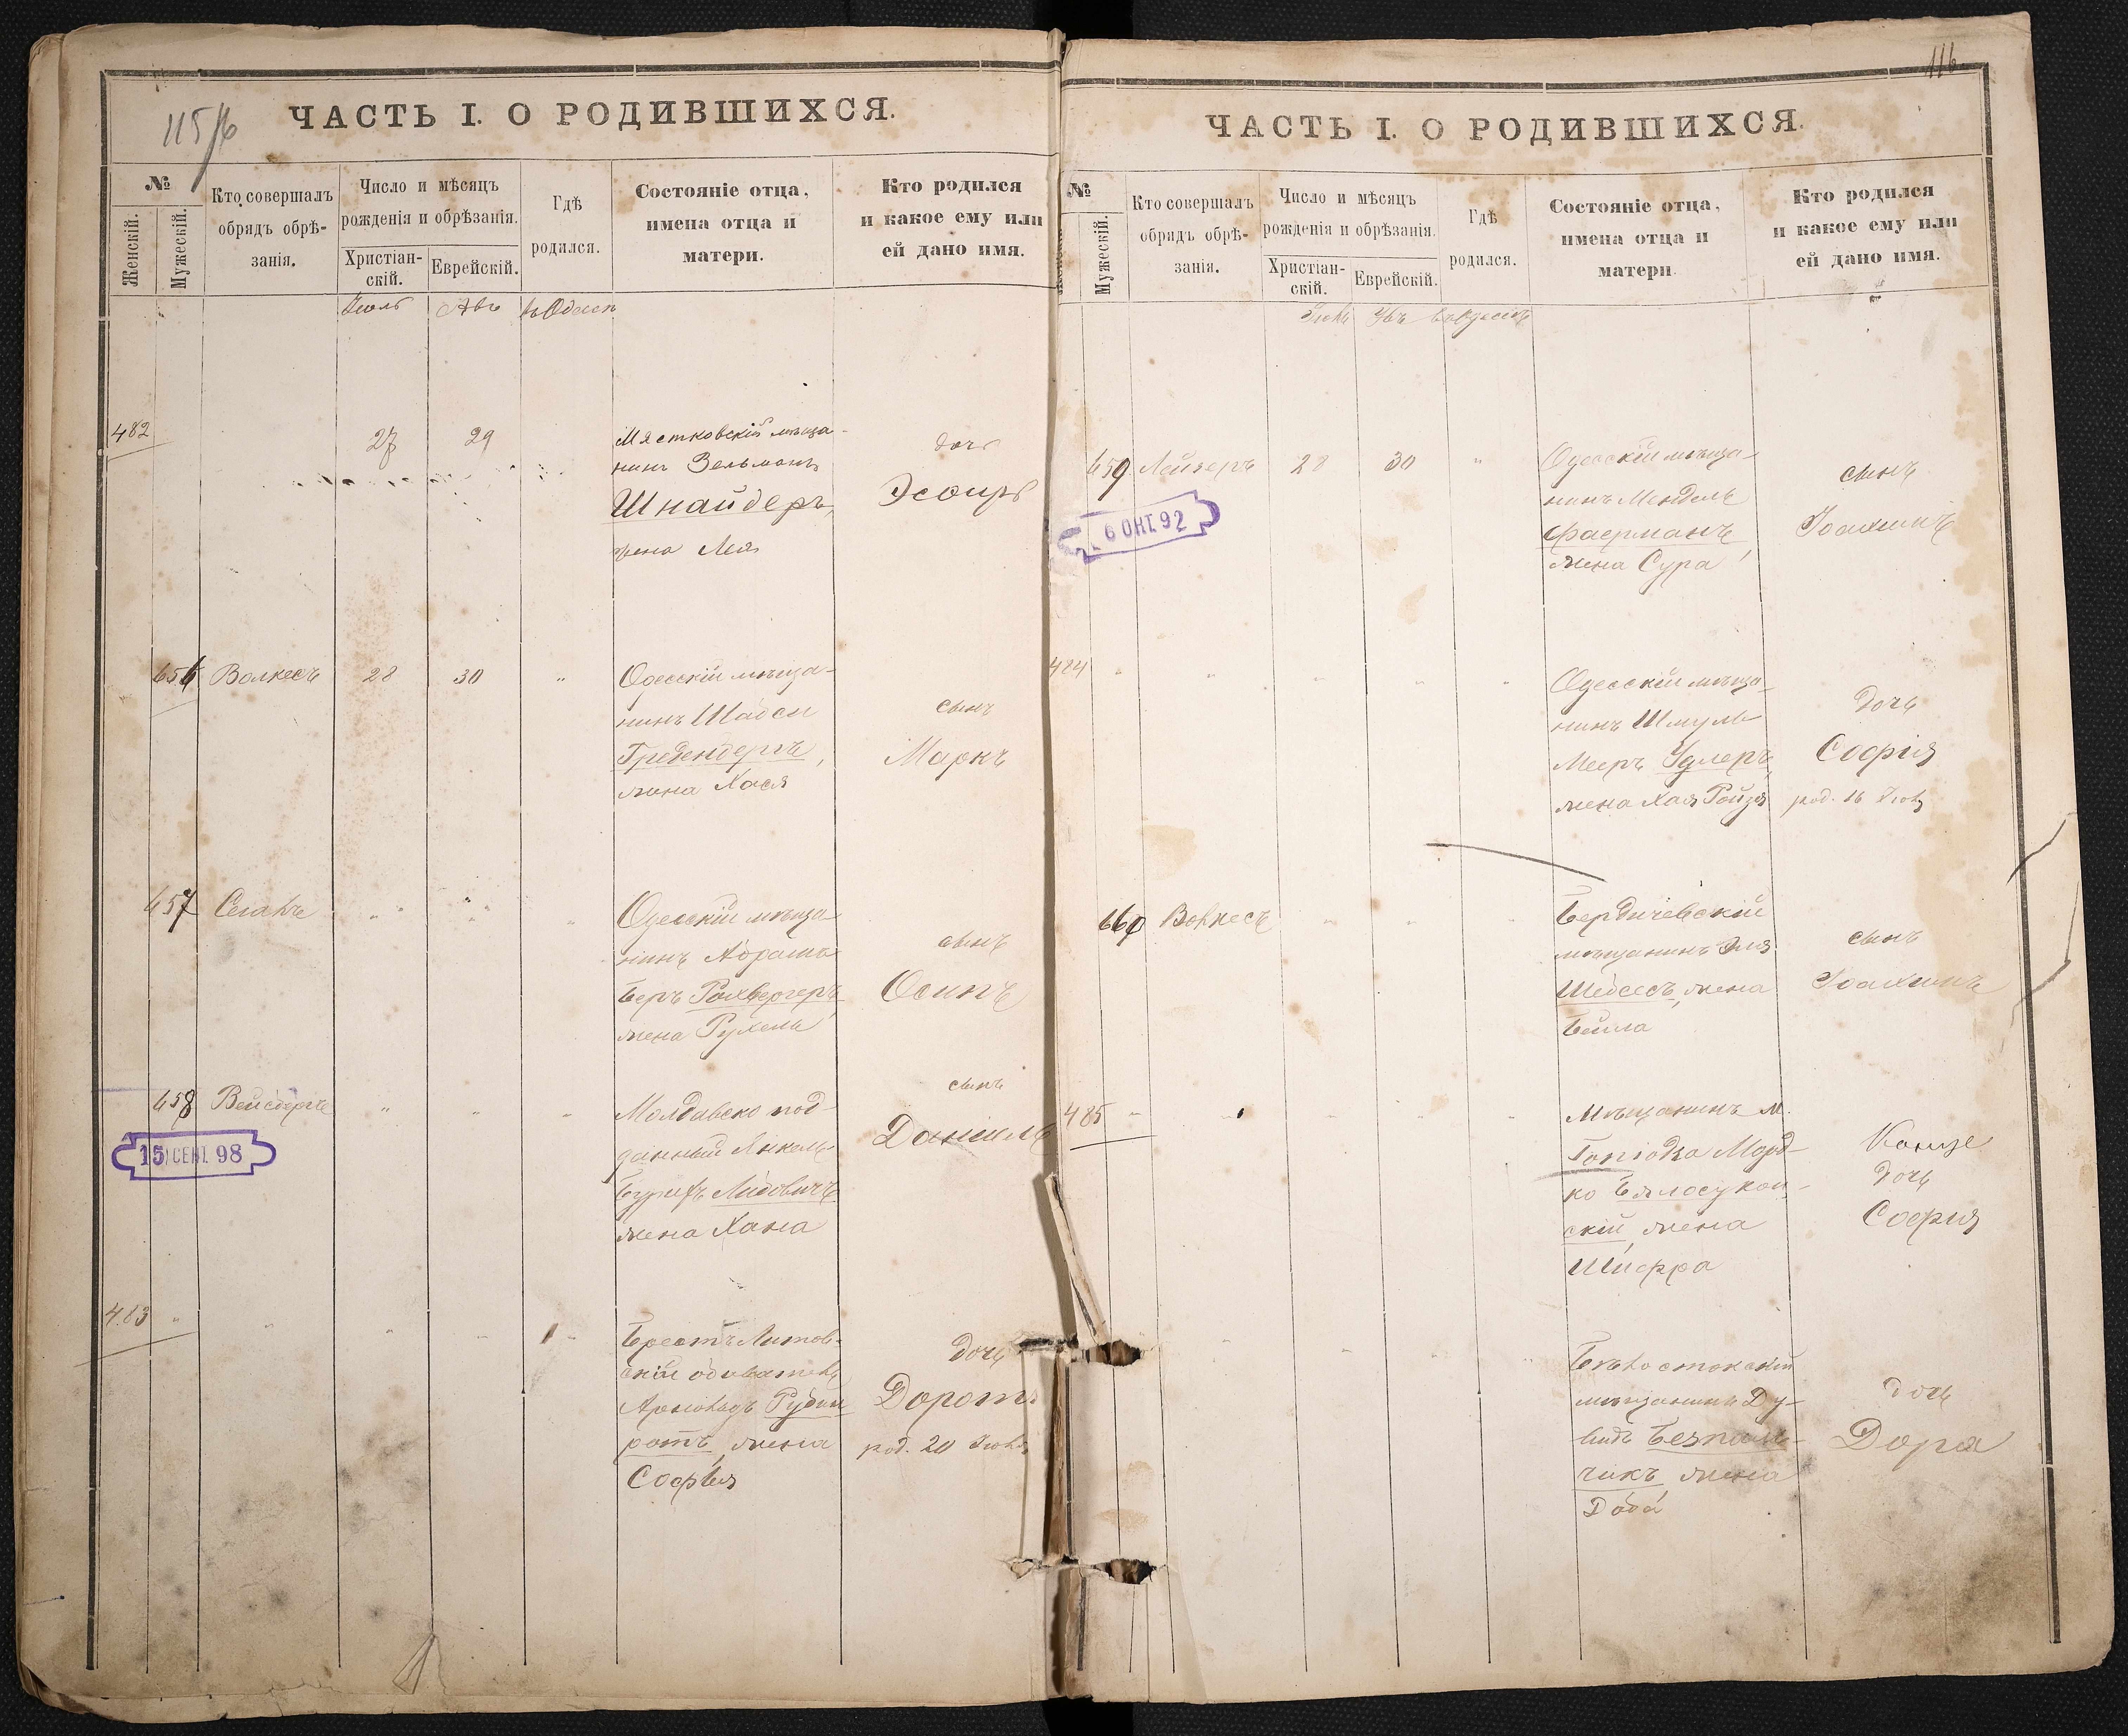 115/б
ЧАСТЬ I. О РОДИВШИХСЯ.
№
Женскій.
Мужескій.
Кто совершалъ
обрядъ обрѣ-
занія.
Число и мѣсяцъ
рожденія и обрѣзанія.
Христіан-
скій.
Еврейскій.
Гдѣ
родился.
Состояніе отца,
имена отца и
матери.
Кто родился
и какое ему или
ей дано имя.
Іюль Авъ въ Одессѣ
482 27 29
Мястковскій мѣща-
нинъ Зельманъ
Шнайдеръ,
жена Лея
дочь
Эсѳирь
656 Волкесъ 28 30 "
Одесскій мѣща-
нинъ Шабси
Гребенбергъ,
жена Хася
сынъ
Маркъ
657 Сегалъ " " "
Одесскій мѣща
нинъ Абрамъ
Беръ Ройхвергеръ,
жена Рухель
сынъ
Осипъ
658 Вейсбергъ " " "
15 СЕНТ. 98
Молдавско под-
данный Янкель-
жена Хана
сынъ
Даніилъ
483 " " " " "
Брестъ Литов-
скій обыватель
Арнольдъ Рубин
ротъ, жена
Софья
дочь
род. 20 Іюля
116
ЧАСТЬ I. О РОДИВШИХСЯ.
№
Мужескій.
Кто совершалъ
обрядъ обрѣ-
занія.
Число и мѣсяцъ
рожденія и обрѣзанія.
Христіан-
скій.
Еврейскій.
Гдѣ
родился.
Состояніе отца,
имена отца и
матери.
Кто родился
и какое ему или
ей дано имя.
Іюль Авъ въ Одессѣ
659 Лейзеръ 28 30 "
6 ОКТ. 92
Одесскій мѣща-
нинъ Мендель
Фаерманъ,
жена Сура
сынъ
Іоахимъ
484 " " " " "
Одесскій мѣща-
нинъ Шмуль
Мееръ Удлеръ,
жена Хая Ройзя
дочь
Софія
род. 16 Іюля
660 Волкесъ " " "
Бердичевскій
мѣщанинъ Эля
Шейсесъ, жена
Бейла
сынъ
Іоахимъ
485 " " " "
Мѣщанинъ м.
Морд-
ко Бялосукон-
скій, жена
Шифра
дочь
Софія
" " "
Бѣлостокскій
мѣщанинъ Ду-
видъ Безпаль-
чикъ, жена
Доба
дочь
Дора